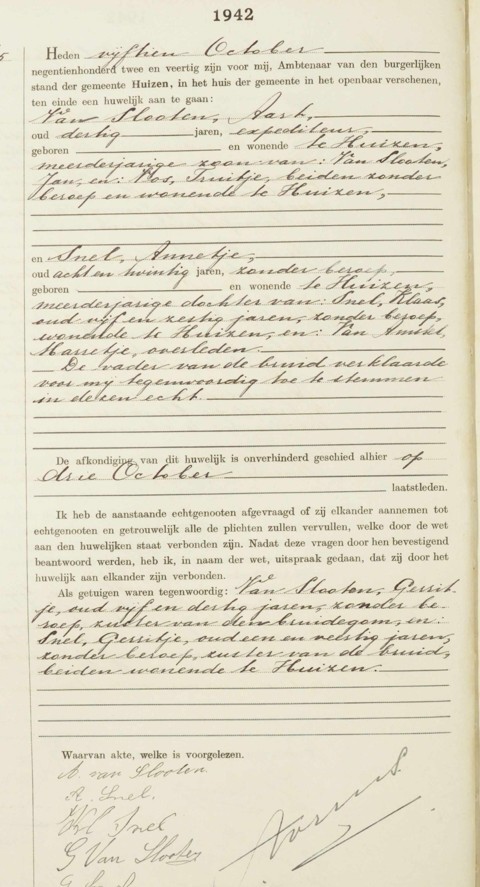 1942
Heden vijftien October
negentienhonderd twee en veertig zijn voor mij, Ambtenaar van den burgerlijken
stand der gemeente Huizen, in het huis der gemeente in het openbaar verschenen,
ten einde een huwelijk aan te gaan:
Van Slooten, Aart,
oud dertig jaren, expediteur,
geboren en wonende te Huizen,
meerderjarige zoon van: Van Slooten,
Jan, en: Vos, Truitje, beiden zonder
beroep en wonende te Huizen,
en Snel, Annetje,
oud acht en twintig jaren, zonder beroep,
geboren en wonende te Huizen,
meerderjarige dochter van: Snel, Klaas,
oud vijf en zestig jaren, zonder beroep,
wonende te Huizen, en: Van
Marretje, overleden.
De vader van de bruid verklaarde
voor my tegenwoordig toe te stemmen
in dezen echt.
De afkondiging van dit huwelijk is onverhinderd geschied alhier op
drie October
laatstleden.
Ik heb de aanstaande echtgenooten afgevraagd of zij elkander aannemen tot
echtgenooten en getrouwelijk alle de plichten zullen vervullen, welke door de wet
aan den huwelijken staat verbonden zijn. Nadat deze vragen door hen bevestigend
beantwoord werden, heb ik, in naam der wet, uitspraak gedaan, dat zij door het
huwelijk aan elkander zijn verbonden.
Als getuigen waren tegenwoordig: Van Slooten, Gerrit-
je, oud vijf en dertig jaren, zonder be-
roep, zuster van den bruidegom, en:
Snel, Gerritje, oud een en veertig jaren,
zonder beroep, zuster van de bruid,
beiden wonende te Huizen.
Waarvan akte, welke is voorgelezen.
A. van Slooten
A. Snel.
Kl Snel
G Van Slooten